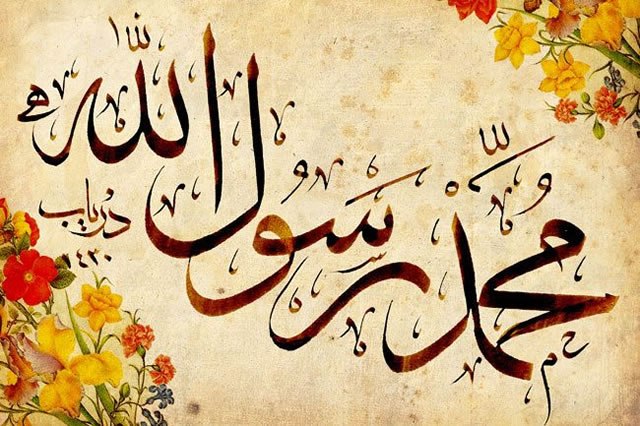 محمّد رسول الله
درياب
١٤٣٠